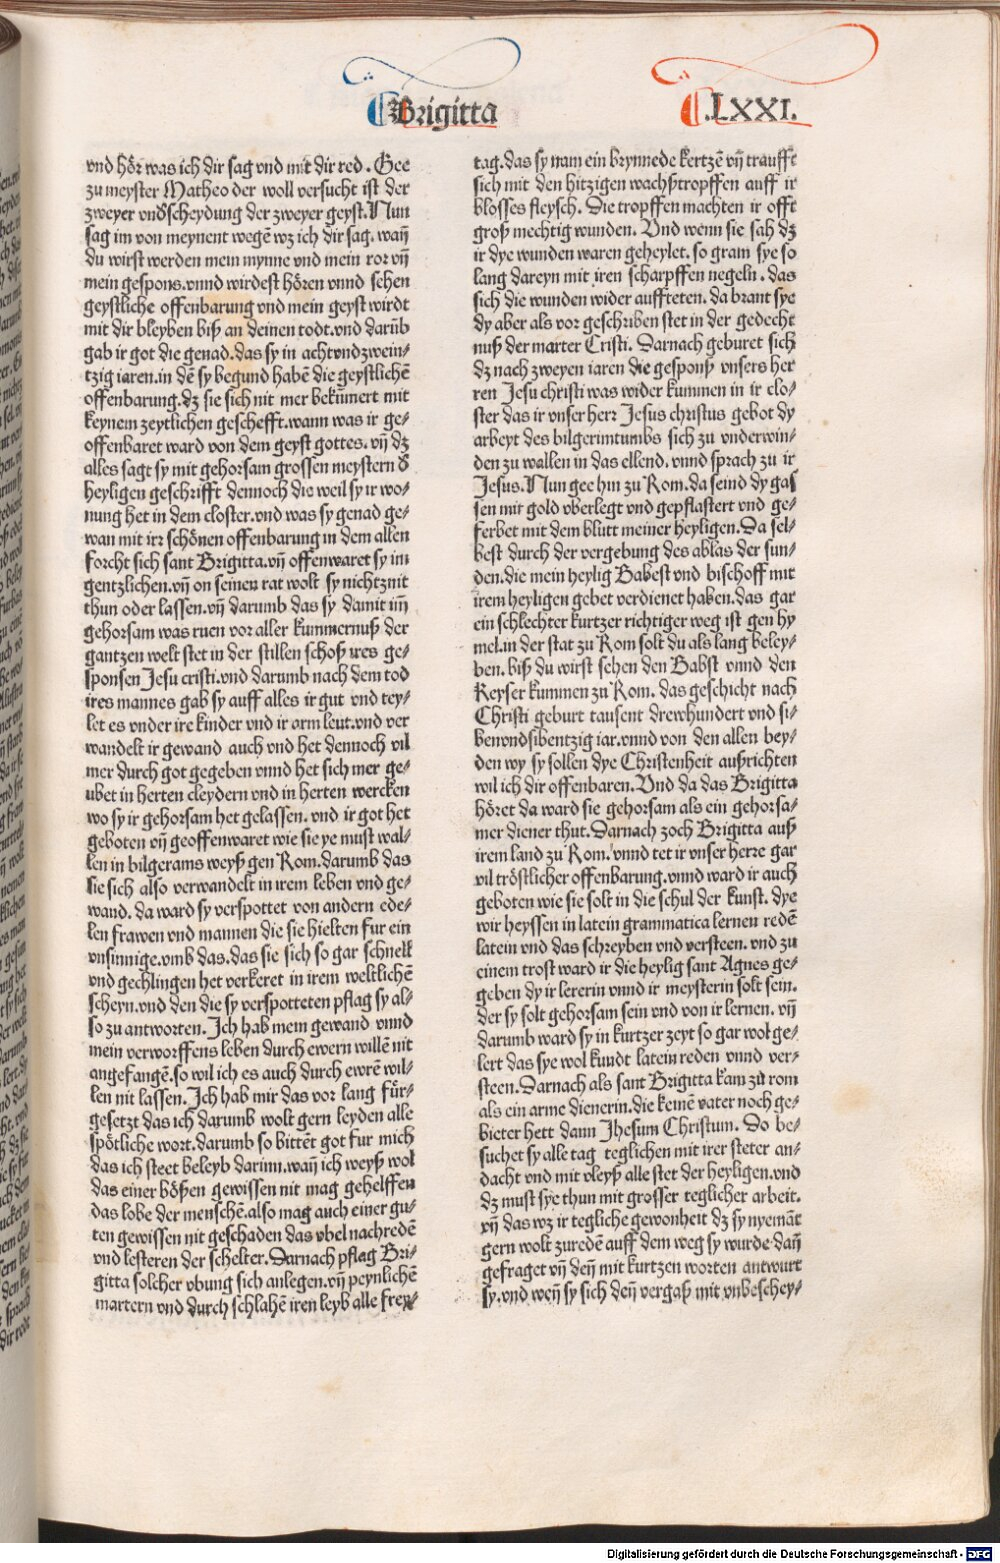 Brigitta
.LXXI.
vnd hör was ich dir sag vnd mit dir red. Gee
zu meyster Matheo der woll versucht ist der
zweyer vnd̕scheydung der zweyer geyst. Nun
sag im von meynent wegē wz ich dir sag. wañ
du wirst werden mein mynne vnd mein ror vñ
mein gespons. vnnd wirdest hören vnnd sehen
geystliche offenbarung vnd mein geyst wirdt
mit dir bleyben biß an deinen todt. vnd darūb
gab ir got die genad. das sy in achtvndzwein⸗
tzig iaren. in dē sy begund habē die geystlichē
offenbarung. dz sie sich nit mer bekūmert mit
keynem zeytlichen geschefft. wann was ir ge⸗
offenbaret ward von dem geyst gottes. vñ dz
alles sagt sy mit gehorsam grossen meystern d̕
heyligen geschrifft dennoch die weil sy ir wo⸗
nung het in dem closter. vnd was sy genad ge⸗
wan mit irr schönen offenbarung in dem allen
forcht sich sant Brigitta. vñ offenwaret sy im
gentzlichen. vñ on seinen rat wolt sy nichtznit
thun oder lassen. vñ darumb das sy damit im̄
gehorsam was ruen vor aller kummernuß der
gantzen welt stet in der stillen schoß ires ge⸗
sponsen Jesu cristi. vnd darumb nach dem tod
ires mannes gab sy auff alles ir gut vnd tey⸗
let es vnder ire kinder vnd ir arm leut. vnd ver
wandelt ir gewand auch vnd het dennoch vil
mer durch got gegeben vnnd het sich mer ge⸗
ubet in herten cleydern vnd in herten wercken
wo sy ir gehorsam het gelassen. vnd ir got het
geboten vñ geoffenwaret wie sie ye must wal⸗
len in bilgerams weyß gen Rom. darumb das
sie sich also verwandelt in irem leben vnd ge⸗
wand. da ward sy verspottet von andern ede⸗
len frawen vnd mannen die sie hielten fur ein
vnsinnige. vmb das. das sie sich so gar schnell
vnd gechlingen het verkeret in irem weltlichē
scheyn. vnd den die sy verspotteten pflag sy al⸗
so zu antworten. Ich hab mein gewand vnnd
mein verworffens leben durch ewern willē nit
angefangē. so wil ich es auch durch ewrē wil⸗
len nit lassen. Ich hab mir das vor lang für⸗
gesetzt das ich darumb wolt gern leyden alle
spötliche wort. darumb so bittēt got fur mich
das ich steet beleyb darinn. wañ ich weyß wol
das einer bößen gewissen nit mag gehelffen
das lobe der menschē. also mag auch einer gu⸗
ten gewissen nit geschaden das vbel nachredē
vnd lesteren der schelter. Darnach pflag Bri⸗
gitta solcher vbung sich anlegen. vñ peynlichē
martern vnd durch schlahē iren leyb alle frey⸗
tag. das sy nam ein brynnede kertzē vñ traufft
sich mit den hitzigen wachßtropffen auff ir
blosses fleysch. Die tropffen machten ir offt
groß mechtig wunden. Vnd wenn sie sah dz
ir dye wunden waren geheylet. so gram sye so
lang dareyn mit iren scharpffen negeln. das
sich die wunden wider auffreten. da brant sye
dy aber als vor geschriben stet in der gedecht
nuß der marter Cristi. Darnach geburet sich
dz nach zweyen iaren die gesponß vnsers her
ren Jesu christi was wider kummen in ir clo⸗
ster das ir vnser herr Jesus christus gebot dy
arbeyt des bilgerimtumbs sich zu vnderwin⸗
den zu wallen in das ellend. vnnd sprach zu ir
Jesus. Nun gee hin zu Rom. da seind dy gas
sen mit gold vberlegt vnd gepflastert vnd ge⸗
ferbet mit dem blutt meiner heyligen. Da sel⸗
best durch der vergebung des ablas der sun⸗
den. die mein heylig Babest vnd bischoff mit
irem heyligen gebet verdienet haben. das gar
ein schlechter kurtzer richtiger weg ist gen hy
mel. in der stat zu Rom solt du als lang beley⸗
ben. biß du wirst sehen den Babst vnnd den
Keyser kummen zu Rom. das geschicht nach
Christi geburt tausent drewhundert vnd si⸗
benvndsibentzig iar. vnnd von den allen bey⸗
den wy sy sollen dye Christenheit außrichten
wil ich dir offenbaren. Vnd da das Brigitta
höret da ward sie gehorsam als ein gehorsa⸗
mer diener thut. Darnach zoch Brigitta auß
irem land zu Rom. vnnd tet ir vnser herre gar
vil tröstlicher offenbarung. vnnd ward ir auch
geboten wie sie solt in die schul der kunst. dye
wir heyssen in latein grammatica lernen redē
latein vnd das schreyben vnd versteen. vnd zu
einem trost ward ir die heylig sant Agnes ge⸗
geben dy ir lererin vnnd ir meysterin solt sein.
der sy solt gehorsam sein vnd von ir lernen. vñ
darumb ward sy in kurtzer zeyt so gar wol ge⸗
lert das sye wol kundt latein reden vnnd ver⸗
steen. Darnach als sant Brigitta kam zů rom
als ein arme dienerin. die keinē vater noch ge⸗
bieter hett dann Jhesum Christum. Do be⸗
suchet sy alle tag teglichen mit irer steter an⸗
dacht vnd mit vleyß alle stet der heyligen. vnd
dz must sye thun mit grosser teglicher arbeit.
vñ das wz ir tegliche gewonheit dz sy nyemāt
gern wolt zuredē auff dem weg sy wurde dañ
gefraget vñ deñ mit kurtzen worten antwurt
sy. vnd weñ sy sich deñ vergaß mit vnbeschey⸗
Digitalisierung gefördert durch die Deutsche Forschungsgemeinschaft - DFG